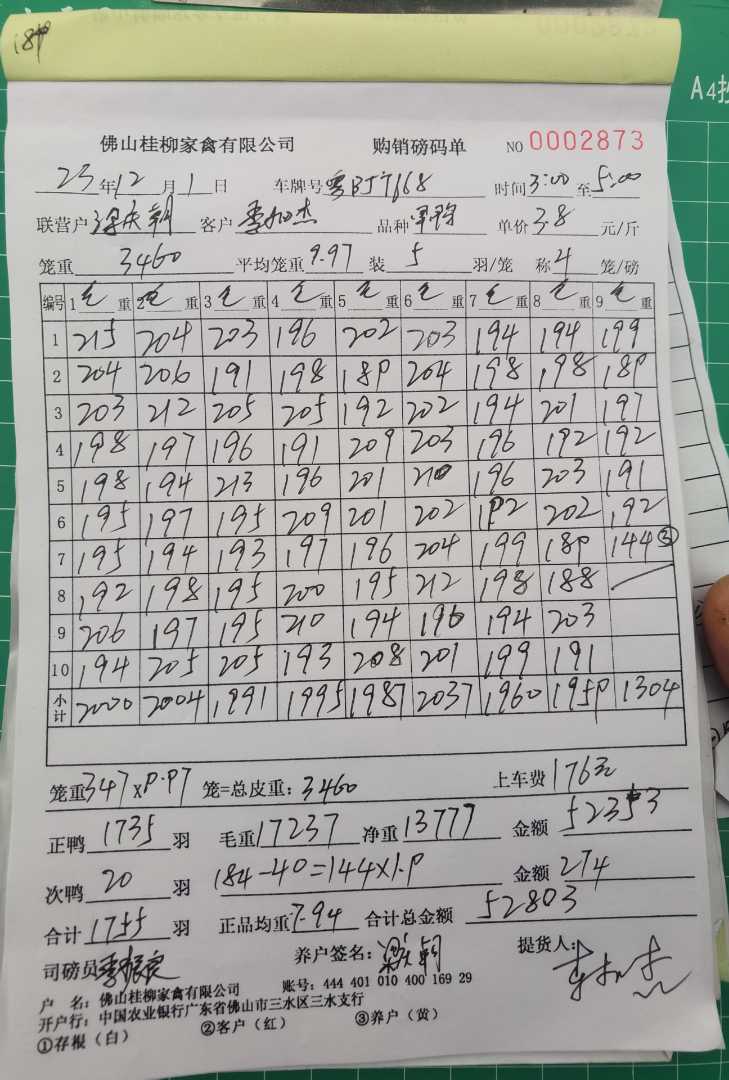 189
A4
佛山桂柳家禽有限公司 购销磅码单 NO 0002873
23年12月1日 车牌号 时间3:00至5:00
联营户 客户 品种 单价3.8元/斤
笼重3460 平均笼重9.97 装5羽/笼 称4笼/磅
编号 1毛重 2毛重 3毛重 4毛重 5毛重 6毛重 7毛重 8毛重 9毛重
1 215 204 203 196 202 203 194 194 199
2 204 206 191 198 189 204 198 198 189
3 203 212 205 205 192 202 194 201 197
4 198 197 196 191 209 203 196 192 192
5 198 194 213 196 201 210 196 203 191
6 195 197 195 209 201 202 192 202 192
7 195 194 193 197 196 204 199 189 144③
8 192 198 195 200 195 212 198 188
9 206 197 195 210 194 196 194 203
10 194 205 205 193 208 201 199 191
小计 2000 2004 1991 1995 1987 2037 1960 1959 1304
笼重347x9.97笼=总皮重:3460 上车费176元
正鸭1735羽 毛重17237 净重13777 金额52353
次鸭20羽 184-40=144x1.9 金额274
合计1755羽 正品均重7.94 合计总金额52803
司磅员 养户签名: 提货人:
户 名:佛山桂柳家禽有限公司 账号:444 401 010 400 169 29
开户行:中国农业银行广东省佛山市三水区三水支行
①存根(白) ②客户(红) ③养户(黄)